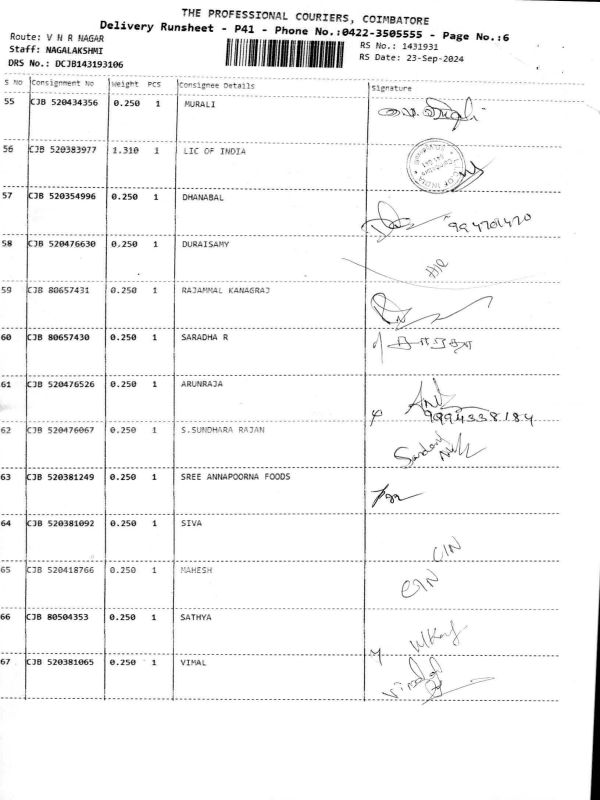 THE PROFESSIONAL COURIERS, COIMBATORE
Delivery Runsheet - P41 - Phone No.:0422-3505555 - Page No.:6
Route: V N R NAGAR
Staff: NAGALAKSHMI
DRS No.: DCJB143193106
RS No.: 1431931
RS Date: 23-Sep-2024
S No Consignment No Weight PCS Consignee Details Signature
55 CJB 520434356 0.250 1 MURALI
56 CJB 520383977 1.310 1 LIC OF INDIA
57 CJB 520354996 0.250 1 DHANABAL
58 CJB 520476630 0.250 1 DURAISAMY
59 CJB 80657431 0.250 1 RAJAMMAL KANAGRAJ
60 CJB 80657430 0.250 1 SARADHA R
61 CJB 520476526 0.250 1 ARUNRAJA
9994338184
62 CJB 520476067 0.250 1 S.SUNDHARA RAJAN
63 CJB 520381249 0.250 1 SREE ANNAPOORNA FOODS
64 CJB 520381092 0.250 1 SIVA
CIN
65 CJB 520418766 0.250 1 MAHESH
66 CJB 80504353 0.250 1 SATHYA
67 CJB 520381065 0.250 1 VIMAL
Vimal